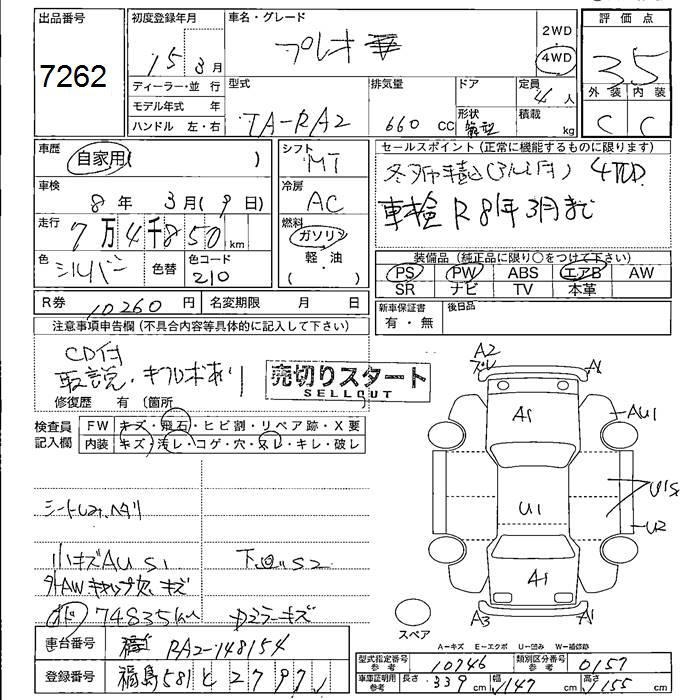 出品番号
7262
初度登録年月
15 3月
ディーラー・並 行
モデル年式 年
ハンドル 左・右
車名・グレード
プレオ
2WD
4WD
評価点
3.5
外装 内装
C C
型式
TA-RA2
排気量
660 CC
ドア
形状
定員
4人
積載
kg
車歴
自家用( )
車検
8年 3月(9日)
走行
7万4千850km
色
シルバー
色替
色コード
210
R券
10260円
名変期限 月 日
シフト
MT
冷房
AC
燃料
ガソリン
軽・油
( )
セールスポイント(正常に機能するものに限ります)
4WD
車検R8年3月まで
装備品(純正品に限り○をつけて下さい)
PS PW ABS エアB AW
SR ナビ TV 本革
新車保証書
有・無
後日品
注意事項申告欄(不具合内容等具体的に記入して下さい)
CD付
取説・キーNo.あり
修復歴 有 (箇所
売切りスタート
SELLOUT
検査員
記入欄
FW キズ・飛石・ヒビ割・リペア跡・X要
内装 キズ・汚レ・コゲ・穴・ヌレ・キレ・破レ
シートU2、ヘタリ
小キズAU S1
下廻りS2
外AWキャップ欠、キズ
74835km
ミラーキズ
車台番号
RA2-148154
登録番号
福島581と2797
A2
A1
A1
AU1
U1
U1S
U2
A1
A3
A1
スペア
A-キズ E-エクボ U-凹み W-補修跡
型式指定番号
参考
10746
類別区分番号
参考
0157
車庫証明用
参考
長さ 339 cm
幅 147 cm
高さ 155 cm